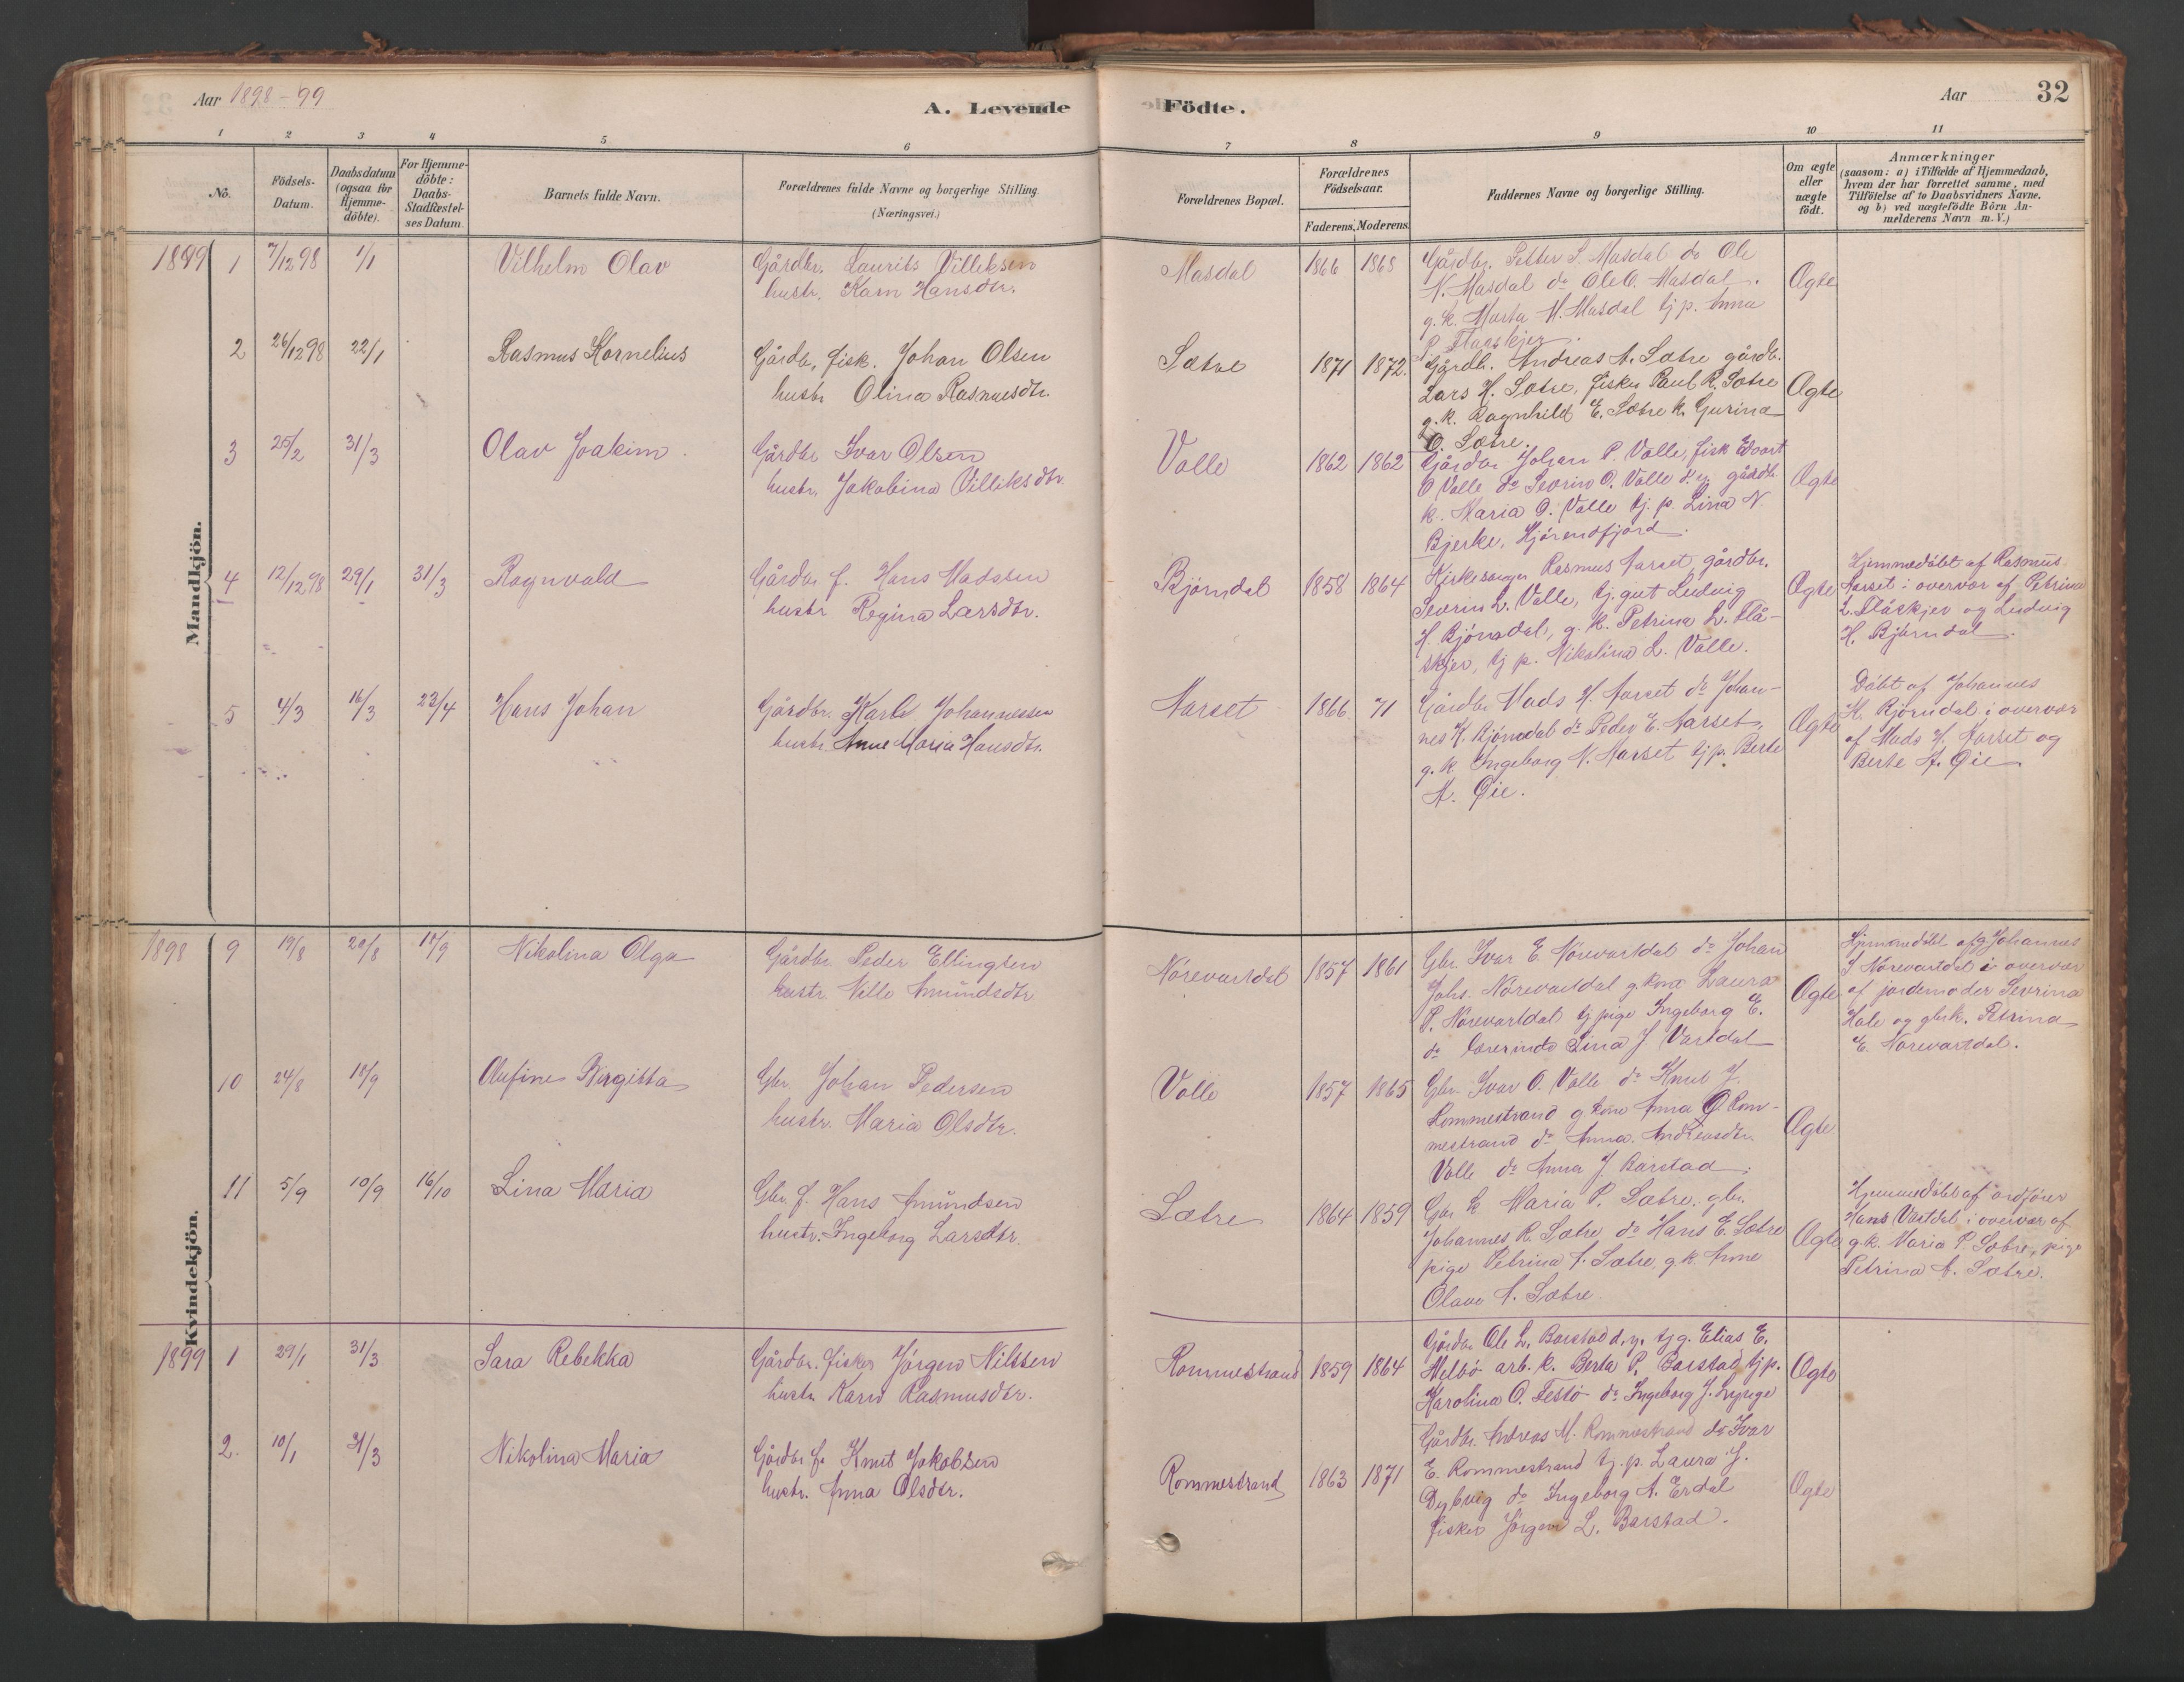 Aar 1898-99
A. Levende Födte.
Aar
32
1
2
3
4
5
6
7
8
9
10
11
No.
Födsels-Datum.
Daabsdatum (ogsaa for Hjemmedöbte).
For Hjemmedöbte: Daabs-Stadfæstelses Datum
Barnets fulde Navn.
Forældrenes fulde Navne og borgerlige Stilling.
(Næringsvei.)
Forældrenes Bopæl.
Forældrenes Födselsaar.
Faderens. Moderens.
Faddernes Navne og borgerlige Stilling.
Om ægte eller uægte födt.
Anmærkninger
(saasom: a) i Tilfælde af Hjemmedaab,
hvem der har forrettet samme, med
Tilföielse af to Daabsvidners Navne,
og b) ved uægtefödte Börn Anmelderens Navn m. V.)
Mandkjön.
1899 1 7/12 98 1/1 Vilhelm Olav
Gårdbr. Laurits Villiksen
hustr. Karn Hansdtr.
Masdal 1866 1868
Gårdbr. Petter S. Masdal do Ole
N. Masdal do Ole O. Masdal.
g. k. Marta M. Masdal tj p. Anna
P. Flaaskjer.
Ægte
2 26/12 98 22/1 Rasmus Kornelius
Gårdb, fisk. Johan Olsen
hustr Olina Rasmusdtr.
Sætre 1871 1872.
Gårdb. Andreas A. Sætre gårdb.
Lars H. Sætre, fisker Paul R. Sætre
g. k. Ragnhild E. Sætre k. Gurina
O. Sætre.
Ægte
3 25/2 31/3 Olav Joakim.
Gårdbr Ivar Olsen
hustr. Jakobina Villiksdtr.
Valle 1862 1862
Gårdbr Johan P. Valle, fisk Edvart
O Valle do Sevrin O. Valle d. y. gårdb.
k. Maria O. Valle tj. p. Lina N.
Bjerke, Hjörendfjord.
Ægte
4 12/12 98 29/1 31/3 Ragnvald
Gårdbr f. Hans Madssen
hustr Regina Larsdtr.
Bjørndal 1858 1864
Kirkesanger Rasmus Aarset, gårdbr.
Sevrin L. Valle, tj. gut Ludvig
H Bjørndal, g. k. Petrina L. Flå-
skjer, tj p. Nikolina L. Valle.
Ægte
Hjemmedöbt af Rasmus
Aarset i overvær af Petrina
L. Flåskjer og Ludvig
H. Bjørndal.
5 4/3 16/3 23/4 Hans Johan
Gårdbr. Karl Johannessen
hustr. Anne Maria Hansdtr.
Aarset 1866 71
Gårdbr Mads H. Aarset do Johan-
nes H. Bjørndal do Peder E. Aarset,
g. k Ingeborg N. Aarset tj p. Berte
A. Øie.
Ægte
Döbt af Johannes
H. Bjørndal i overvær
af Mads H. Aarset og
Berte A. Øie
Kvindekjön.
1898 9 19/8 20/8 18/9 Nikolina Olga
Gårdbr. Peder Ellingsen
hustr. Nille Amundsdtr
Nörevartdal 1857 1861
Gbr. Ivar E. Nörevartdal do Johan
Johs. Nörevartdal g. kone Laura
P. Nörevartdal tj pige Ingeborg E.
do lærerinde Lina J Vartdal
Ægte
Hjemmedöbt af Johannes
J Nörevartdal i overvær
af jordemoder Sevrina
Hole og gbrk. Petrina
E. Nörevartdal.
10 24/8 18/9 Olufine Birgitta
Gbr. Johan Pedersen
hustr. Maria Olsdtr.
Valle 1857 1865
Gbr. Ivar O. Valle do Knut J.
Rommestrand g kone Anna O Rom-
mestrand do Anna Andreasdtr.
Valle do Anna J. Barstad.
Ægte
11 5/9 10/9 16/10 Lina Maria
Gbr. f. Hans Amundsen
hustr. Ingeborg Larsdtr.
Sætre 1864 1859
Gbr k Maria P. Sætre, gbr.
Johannes R. Sætre do Hans E. Sætre
pige Petrina A. Sætre, g. k. Anne
Olave A. Sætre.
Ægte
Hjemmedöbt af ordfører
Hans Vartdal i overvær af
g. k. Maria P. Sætre, pige
Petrina A. Sætre.
1899 1 29/1 31/3 Sara Rebekka
Gårdbr. fisker Jørgen Nilssen
hustr. Karn Rasmusdtr.
Rommestrand 1859 1864
Gårdbr Ole L. Barstad d. y. tj g. Elias E.
Melsö arb. k. Berta P. Barstad tj p.
Karolina O. Festö do Ingeborg J. Lynge
Ægte
2. 10/1 31/3 Nikolina Maria
Gårdbr f. Knut Jakobsen
hustr. Anna Olsdtr.
Rommestrand 1863 1871
Gårdbr. Andreas M. Rommestrand do Ivar
E. Rommestrand tj. p. Laura J.
Dybvig do Ingeborg A. Erdal
fisker Jørgen L. Barstad.
Ægte